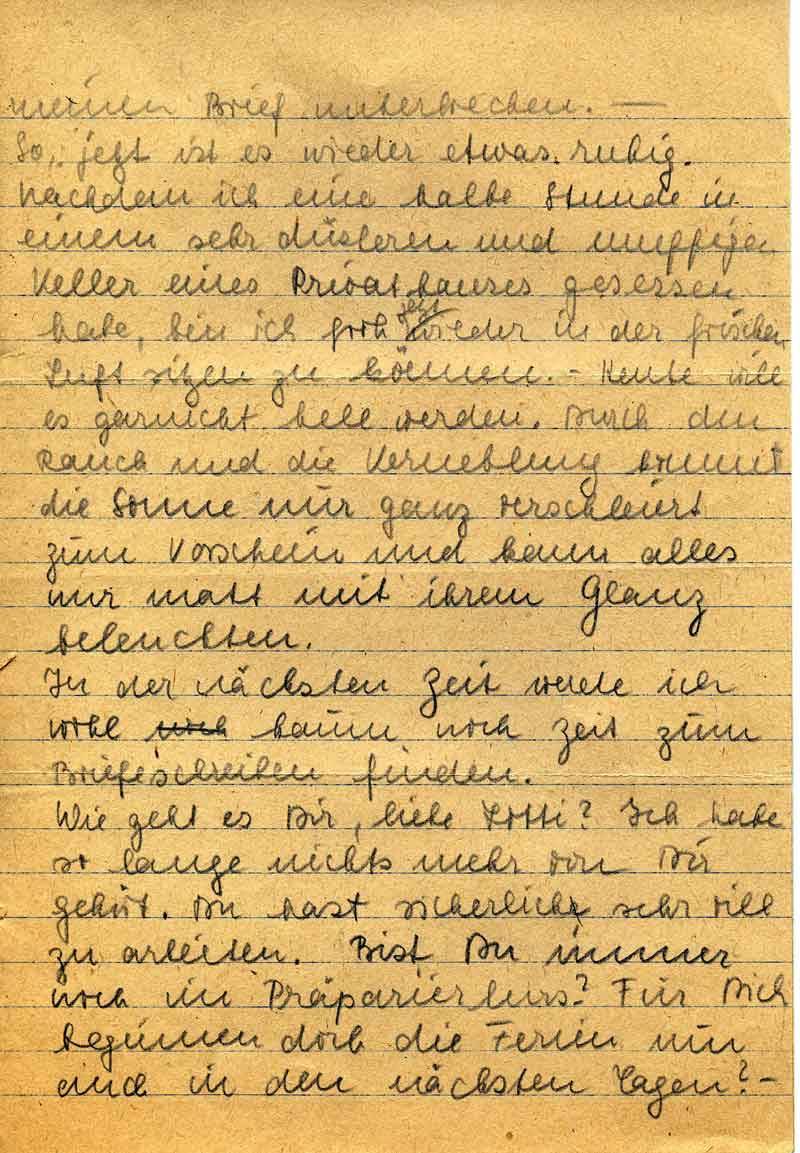 meinen Brief unterbrechen. —
So, jetzt ist es wieder etwas ruhig.
Nachdem ich eine halbe Stunde in
einem sehr düsteren und muffigen
Keller eines Privathauses gesessen
habe, bin ich froh jetzt wieder in der frischen
Luft sitzen zu können. - Heute will
es garnicht hell werden. Durch den
Rauch und die Vernebelung kommt
die Sonne nur ganz verschleiert
zum Vorschein und kann alles
nur matt mit ihrem Glanz
beleuchten.
In der nächsten Zeit werde ich
wohl noch kaum noch Zeit zum
Briefeschreiben finden.
Wie geht es Dir, liebe Lotti? Ich habe
so lange nichts mehr von Dir
gehört. Du hast sicherlich sehr viel
zu arbeiten. Bist Du immer
noch im Präparierkurs? Für Dich
beginnen doch die Ferien nun
auch in den nächsten Tagen? -